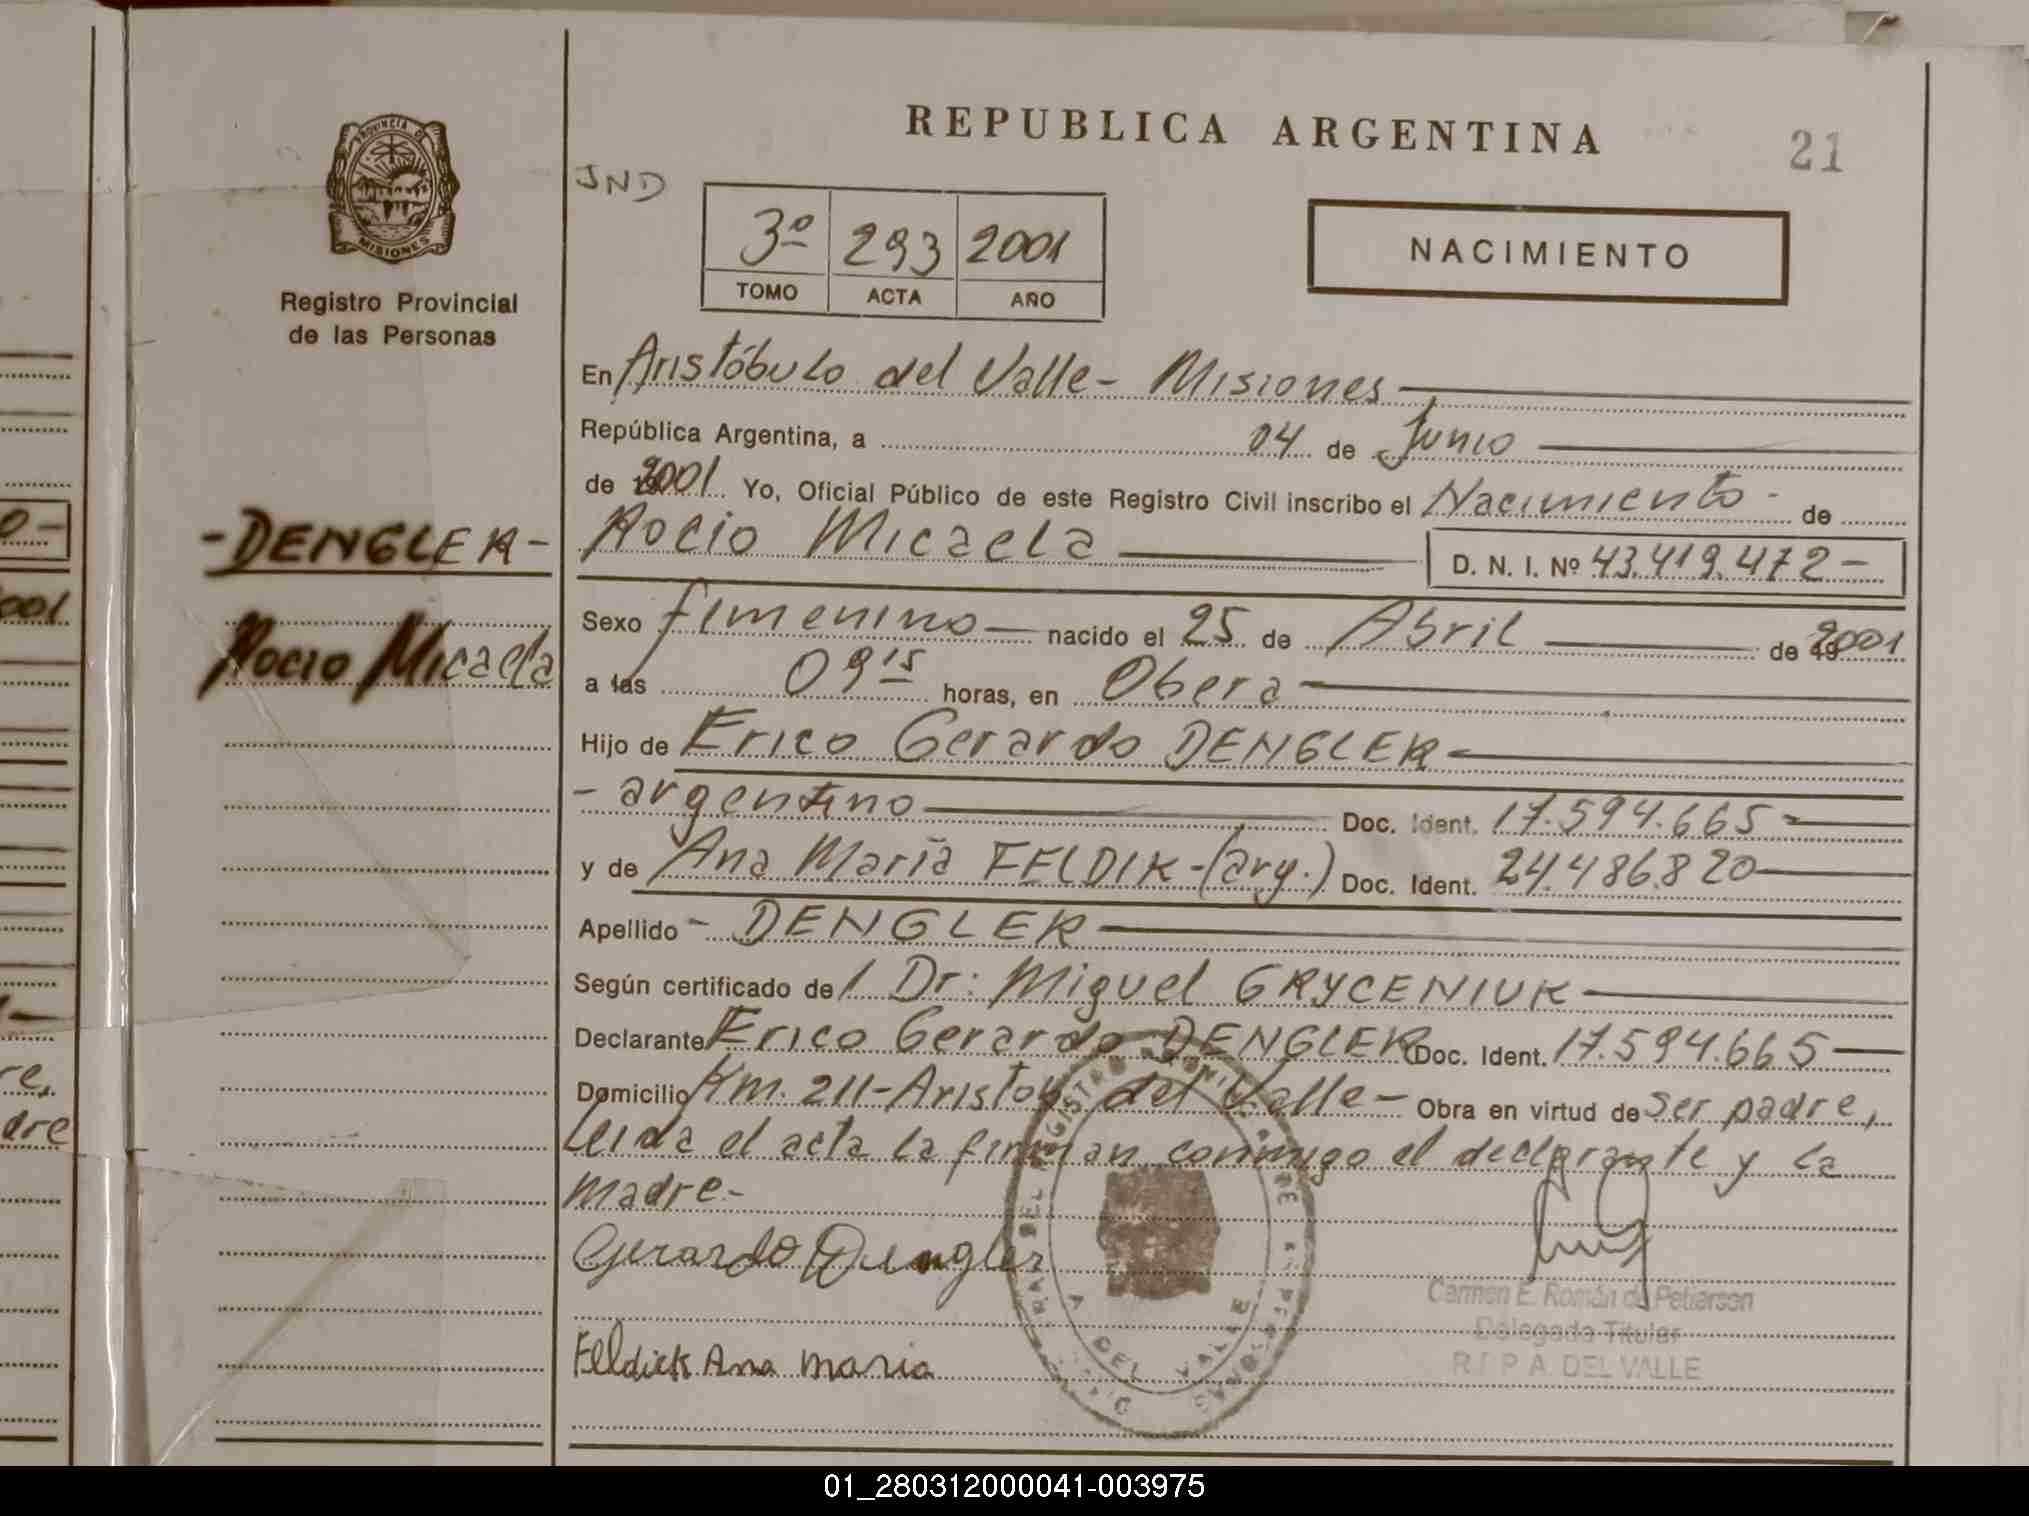 REPUBLICA ARGENTINA
21
PROVINCIA DE
MISIONES
Registro Provincial
de las Personas
JND
3º 293 2001
TOMO ACTA AÑO
NACIMIENTO
En Aristóbulo del Valle - Misiones
República Argentina, a 04 de Junio
de 2001 Yo, Oficial Público de este Registro Civil inscribo el Nacimiento - de
- DENGLER -
Rocio Micaela
D. N. I. Nº 43.419.472 -
Rocio Micaela
Sexo femenino nacido el 25 de Abril de 2001
a las 09 15 horas, en Obera
Hijo de Erico Gerardo DENGLER
- argentino Doc. Ident. 17.594.665 -
y de Ana María FELDIK - (arg.) Doc. Ident. 24.486.820
Apellido - DENGLER
Según certificado del Dr: Miguel GRYCENIUK
Declarante Erico Gerardo DENGLER Doc. Ident. 17.594.665
Domicilio Km. 211 - Aristob. del Valle - Obra en virtud de ser padre,
Leida el acta la firman conmigo el declarante y la
madre. -
Gerardo Dengler
Carmen E. Román de Petterson
Delegada Titular
R.P.P. A. DEL VALLE
Feldick Ana maria
DEL VALLE
001
re,
dre
01_280312000041-003975